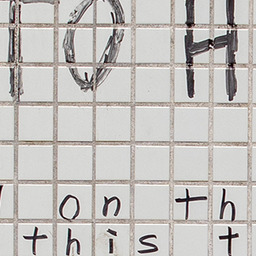 TO H
on th
this t